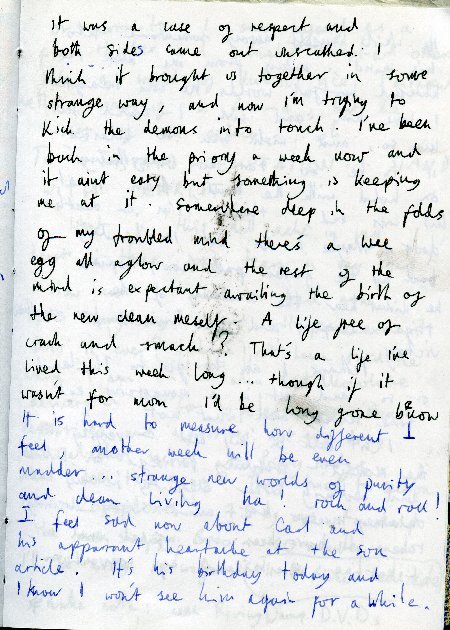 it was a case of respect and
both sides came out unscathed. I
think it brought us together in some
strange way, and now i'm trying to
Kick the demons into touch. I've been
back in the priory a week now and
it aint easy but something is keeping
me at it. Somewhere deep in the folds
of my troubled mind there's a wee
egg all aglow and the rest of the
mind is expectant awaiting the birth of
the new clean meself. A life free of
crack and smack!? That's a life i've
lived this week long... though if it
wasn't for mum I'd be long gone b now
It is hard to measure how different I
feel, another week will be even
madder... strange new worlds of purity
and clean living ha! rock and roll!
I feel sad now about Carl and
his apparant heartache at the sun
article. It's his birthday today and
I know I won't see him again for a while.